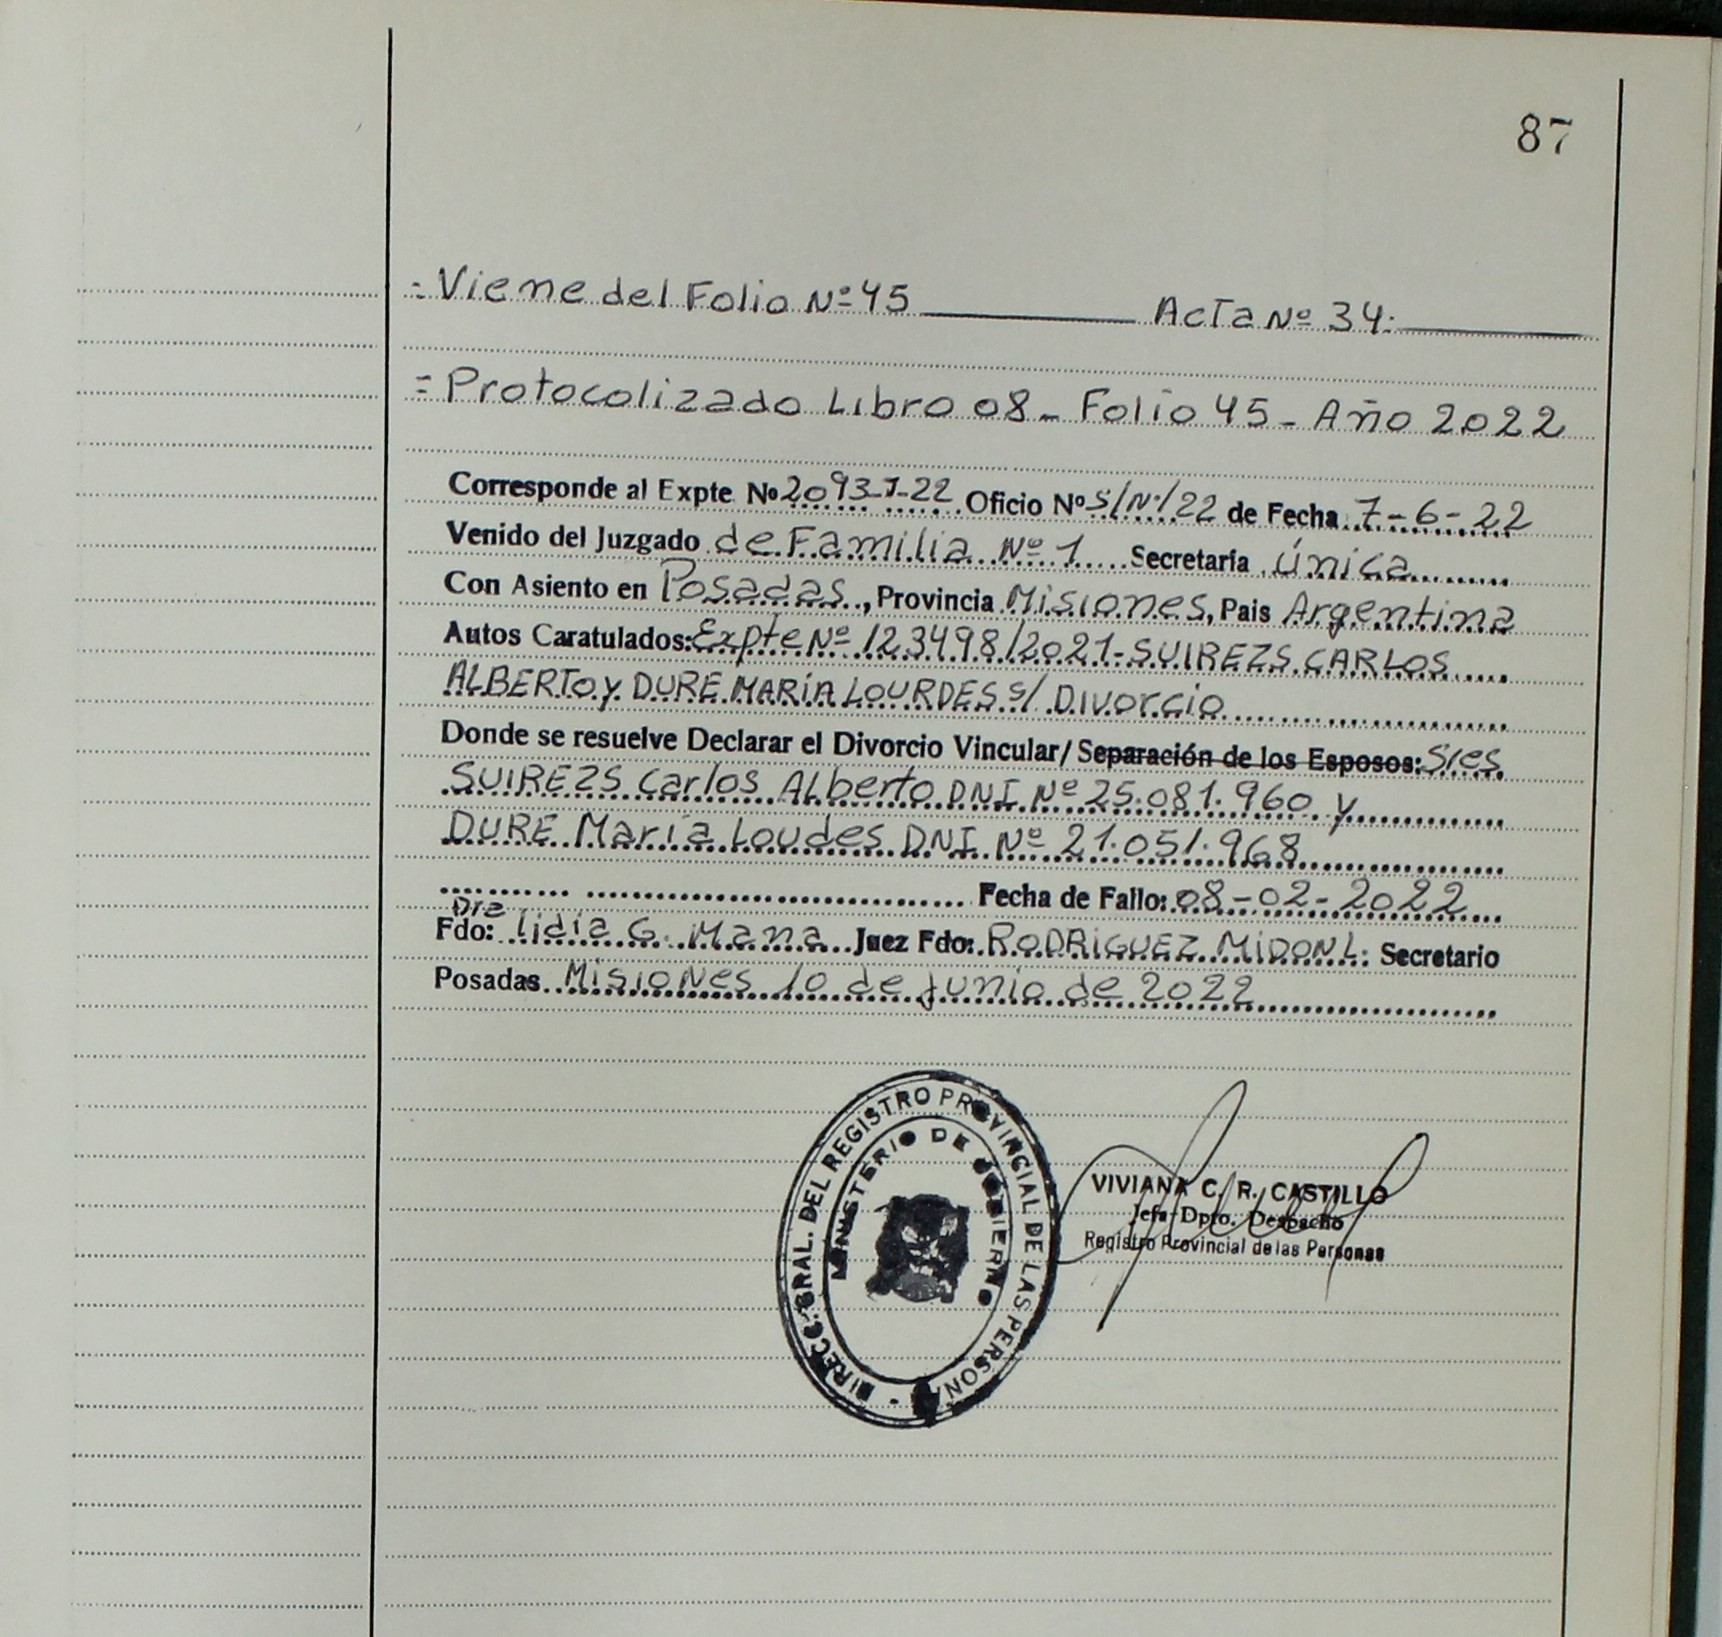 87
= Viene del Folio Nº 45 Acta Nº 34.
= Protocolizado Libro 08 - Folio 45 - Año 2022
Corresponde al Expte Nº 2093-J-22 Oficio Nº S/Nº/22 de Fecha 7-6-22
Venido del Juzgado de Familia Nº 1 Secretaría única
Con Asiento en Posadas, Provincia Misiones, Pais Argentina
Autos Caratulados: Expte Nº 123498/2021-SUIREZS CARLOS
ALBERTO y DURE MARÍA LOURDES s/ Divorcio
Donde se resuelve Declarar el Divorcio Vincular/Separación de los Esposos: Sres
SUIREZS Carlos Alberto DNI Nº 25.081.960 y
DURE María Loudes DNI Nº 21.051.968
Fecha de Fallo: 08-02-2022
Dra
Fdo: lidia G. Mana Juez Fdo: RODRIGUEZ MIDON L. Secretario
Posadas Misiones 10 de junio de 2022
DIRECC. GRAL. DEL REGISTRO PROVINCIAL DE LAS PERSONAS
MINISTERIO DE GOBIERNO
VIVIANA C. R. CASTILLO
Jefa Dpto. Despacho
Registro Provincial de las Personas